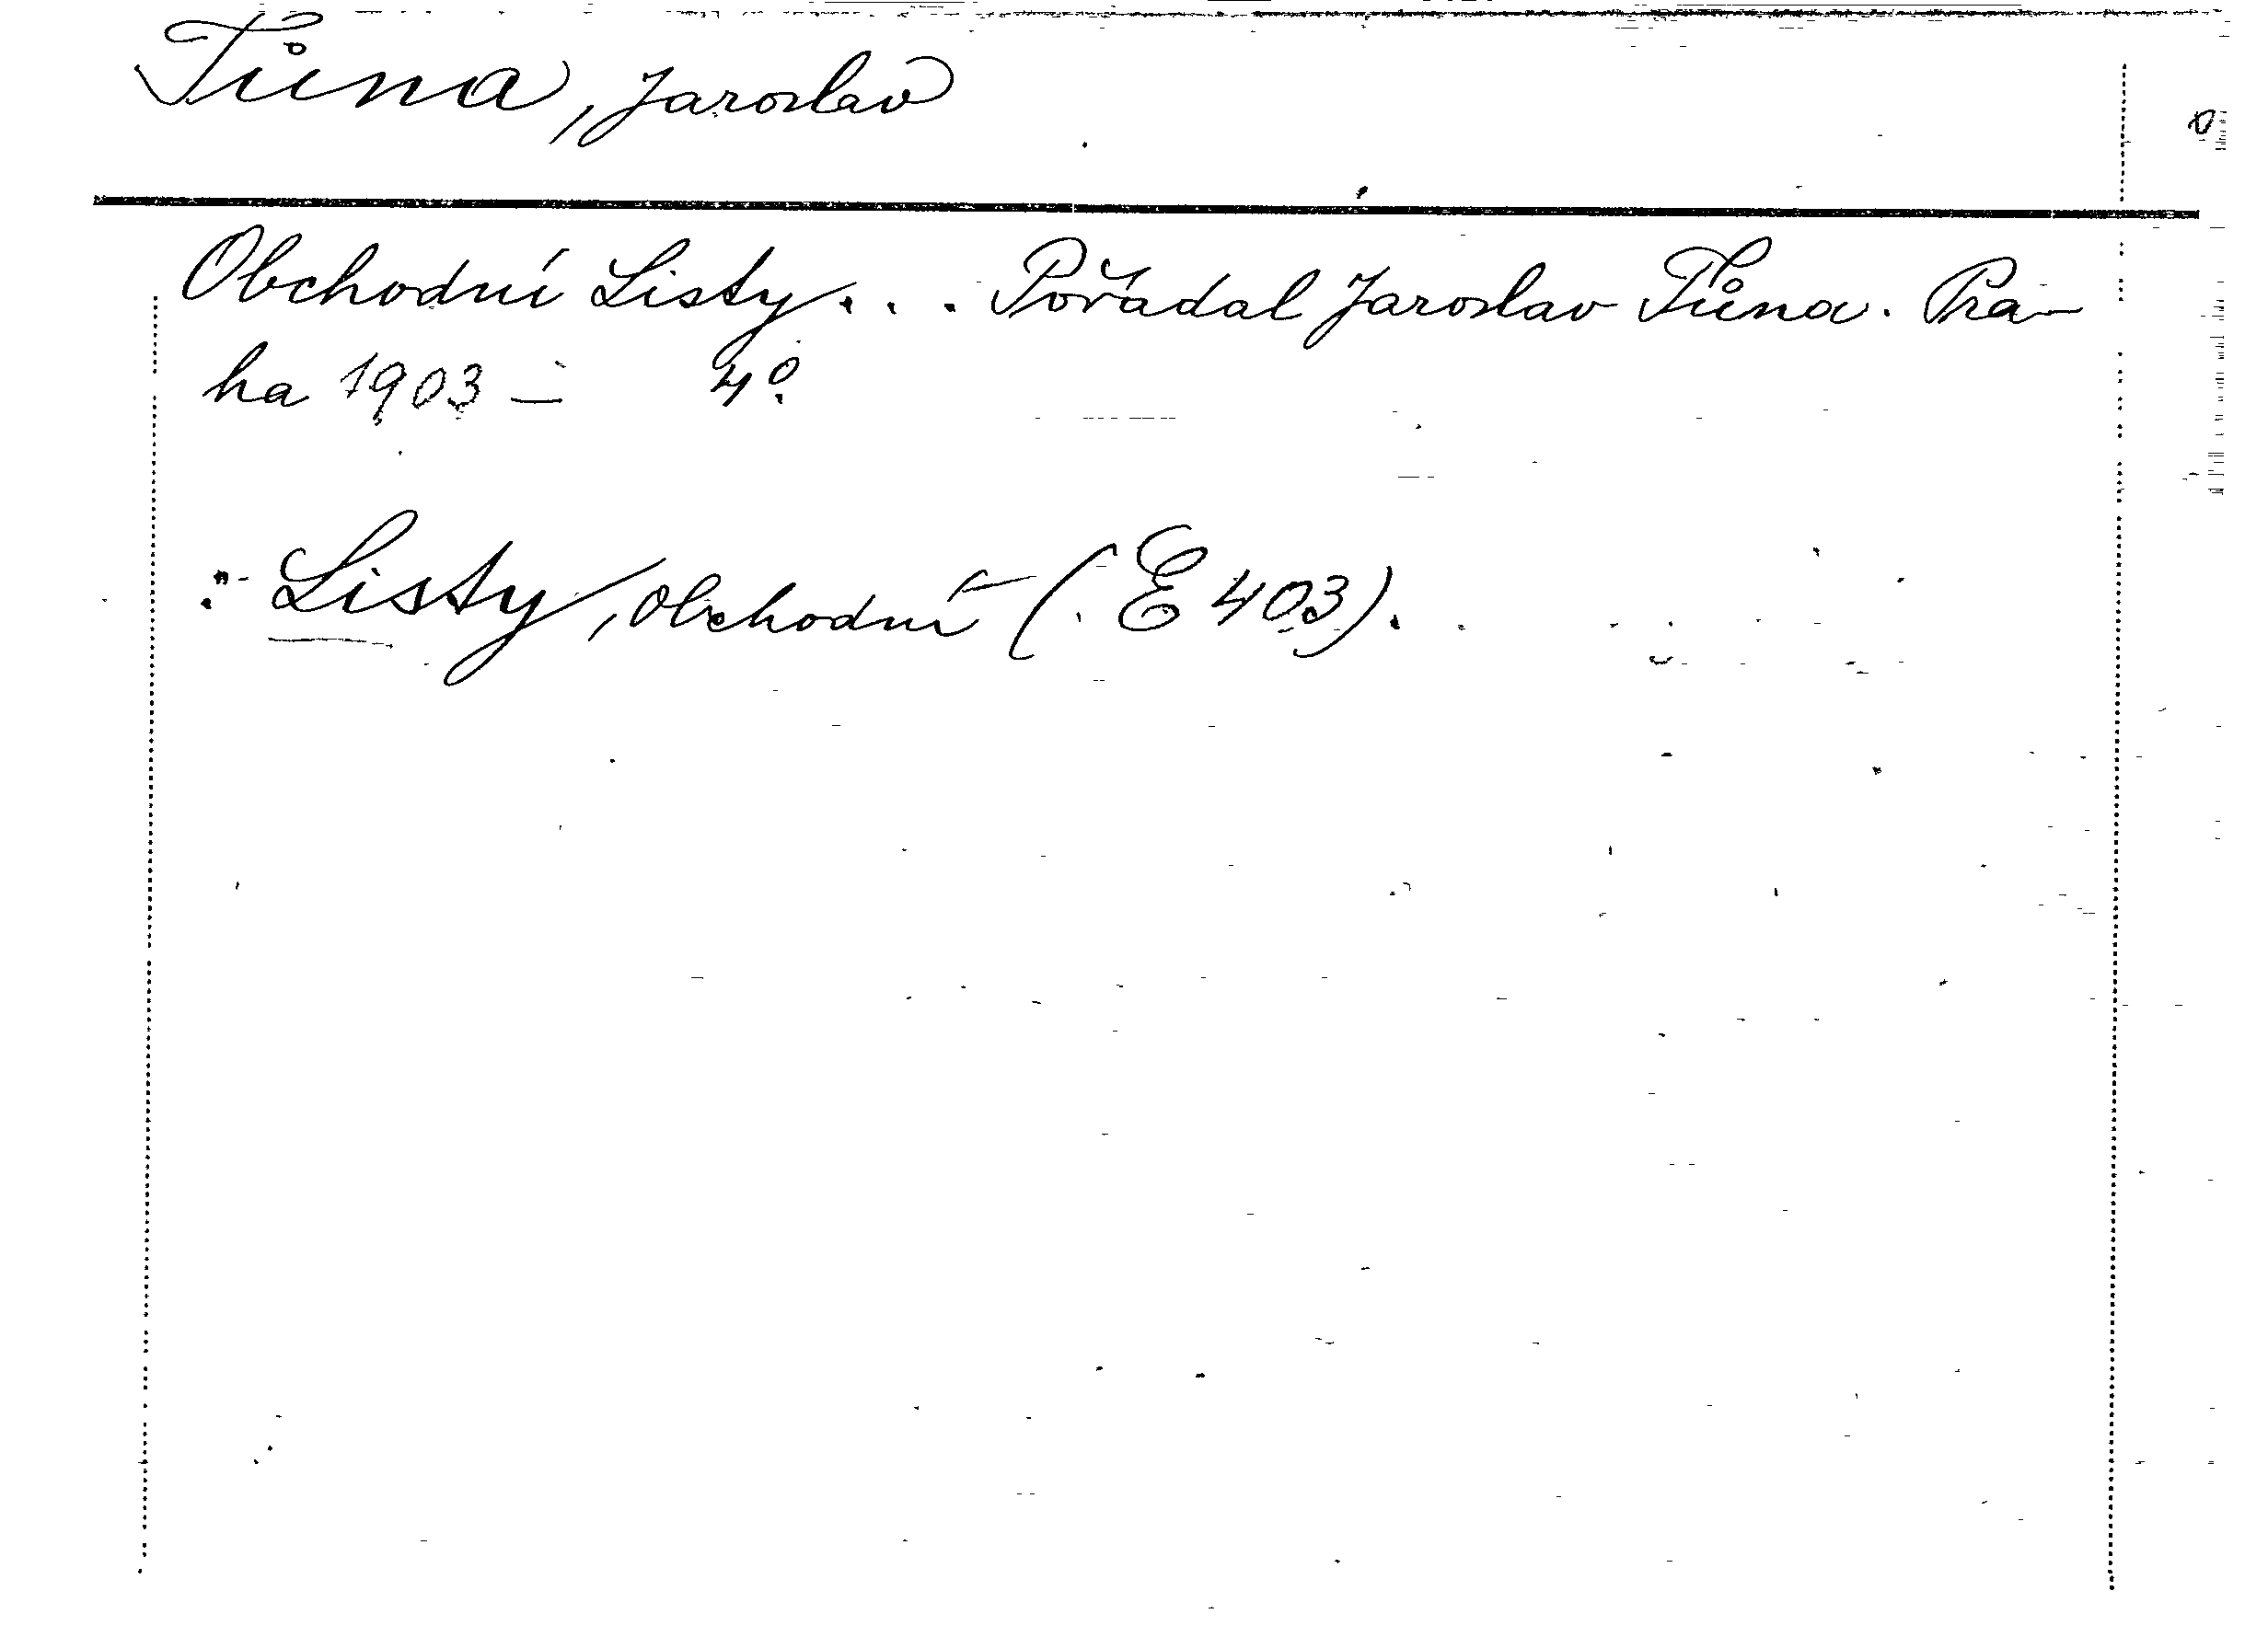 Tůna, Jaroslav
Obchodní Listy... Pořádal Jaroslav Tůna. Pra-
ha 1903 – 4°.
: Listy, obchodní (E 403).